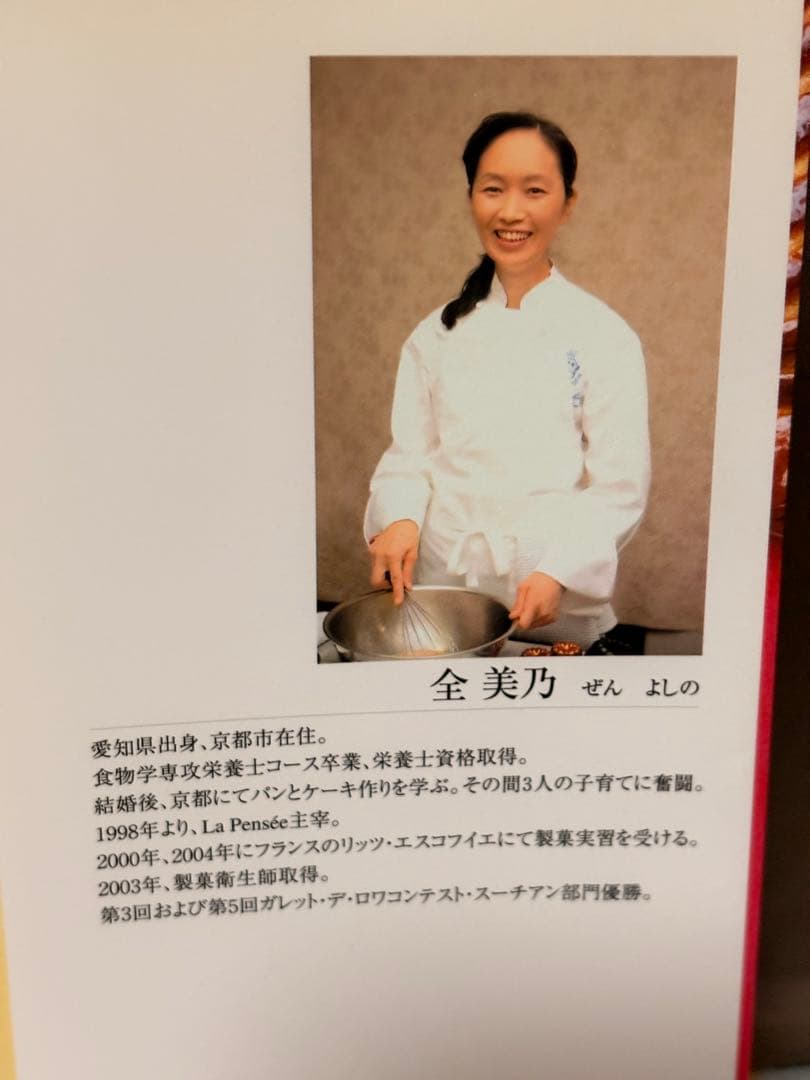 全 美乃 ぜん よしの
愛知県出身、京都市在住。
食物学専攻栄養士コース卒業、栄養士資格取得。
結婚後、京都にてパンとケーキ作りを学ぶ。その間3人の子育てに奮闘。
1998年より、La Pensée主宰。
2000年、2004年にフランスのリッツ・エスコフィエにて製菓実習を受ける。
2003年、製菓衛生師取得。
第3回および第5回ガレット・デ・ロワコンテスト・スーチアン部門優勝。